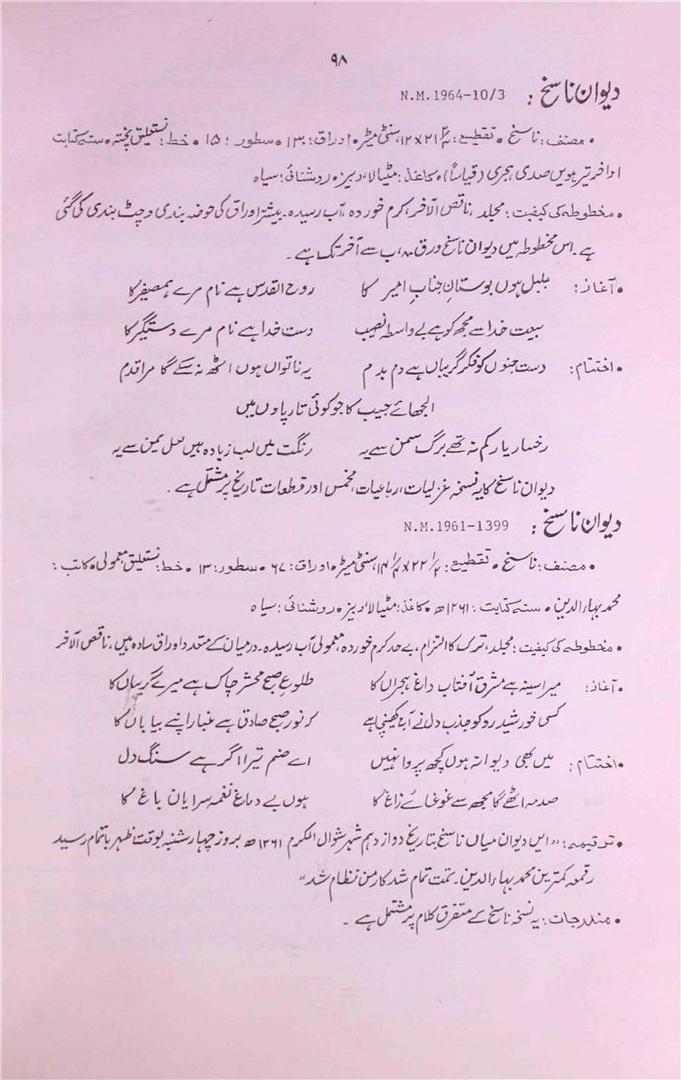 ۹۸
دیوان ناسخ : N.M.1964-10/3
• مصنف : ناسخ • تقطیع : ۲۱ x ۱۲ سنٹی میٹر • اوراق : ۱۳۰ • سطور : ۱۵ • خط : نستعلیق پختہ • سنہ کتابت
اواخر تیرہویں صدی ہجری (قیاساً) • کاغذ : مٹیالا دبیز • روشنائی : سیاہ
• مخطوطہ کی کیفیت : مجلد ، ناقص الآخر ، کرم خوردہ ، آب رسیدہ ۔ بیشتر اوراق کی حوضہ بندی و چٹ بندی کی گئی
ہے ۔ اس مخطوطہ میں دیوان ناسخ ورق ب سے آخر تک ہے ۔
• آغاز : بلبل ہوں بوستانِ جنابِ امیر کا روح القدس ہے نام مرے ہمصفیر کا
بیعت خدا سے مجھ کو ہے بے واسطہ نصیب دست خدا ہے نام مرے دستگیر کا
• اختتام : دست جنوں کو فکر گریباں ہے دم بدم یہ ناتواں ہوں اٹھ نہ سکے گا مرا قدم
الجھائے جیب کا جو کوئی تار پاؤں میں
رخسار یار کم نہ تھے برگ سمن سے یہ رنگت میں لب زیادہ ہیں لعل یمن سے یہ
دیوان ناسخ کا یہ نسخہ غزلیات ، رباعیات ، مخمس اور قطعات تاریخ پر مشتمل ہے ۔
دیوان ناسخ : N.M.1961-1399
• مصنف : ناسخ • تقطیع : سنٹی میٹر • اوراق : ۶۷ • سطور : ۱۳ • خط : نستعلیق معمولی • کاتب :
محمد بہاء الدین • سنہ کتابت : ۱۲۶۱ھ • کاغذ : مٹیالا دبیز • روشنائی : سیاہ
• مخطوطہ کی کیفیت : مجلد ، ترک کا التزام ، بے حد کرم خوردہ ، معمولی آب رسیدہ ۔ درمیان کے متعدد اوراق سادہ ہیں ، ناقص الآخر
• آغاز : میرا سینہ ہے مشرق آفتاب داغ ہجراں کا طلوعِ صبح محشر چاک ہے میرے گریباں کا
کسی خورشید رو کو جذب دل نے آج کھینچا ہے کہ نور صبح صادق ہے غبار اپنے بیاباں کا
• اختتام : میں بھی دیوانہ ہوں کچھ پروا نہیں اے صنم تیرا اگر ہے سنگ دل
صدمہ اٹھے گا مجھ سے غوغائے زاغ کا ہوں بے دماغ نغمہ سرایان باغ کا
• ترقیمہ : "ایں دیوان میاں ناسخ بتاریخ دوازدہم شہر شوال المکرم ۱۲۶۱ھ بروز چہارشنبہ بوقت ظہر باتمام رسید
رقمہ کمترین محمد بہاء الدین ۔ تمت تمام شد کار من نظام شد"
• مندرجات : یہ نسخہ ناسخ کے متفرق کلام پر مشتمل ہے ۔